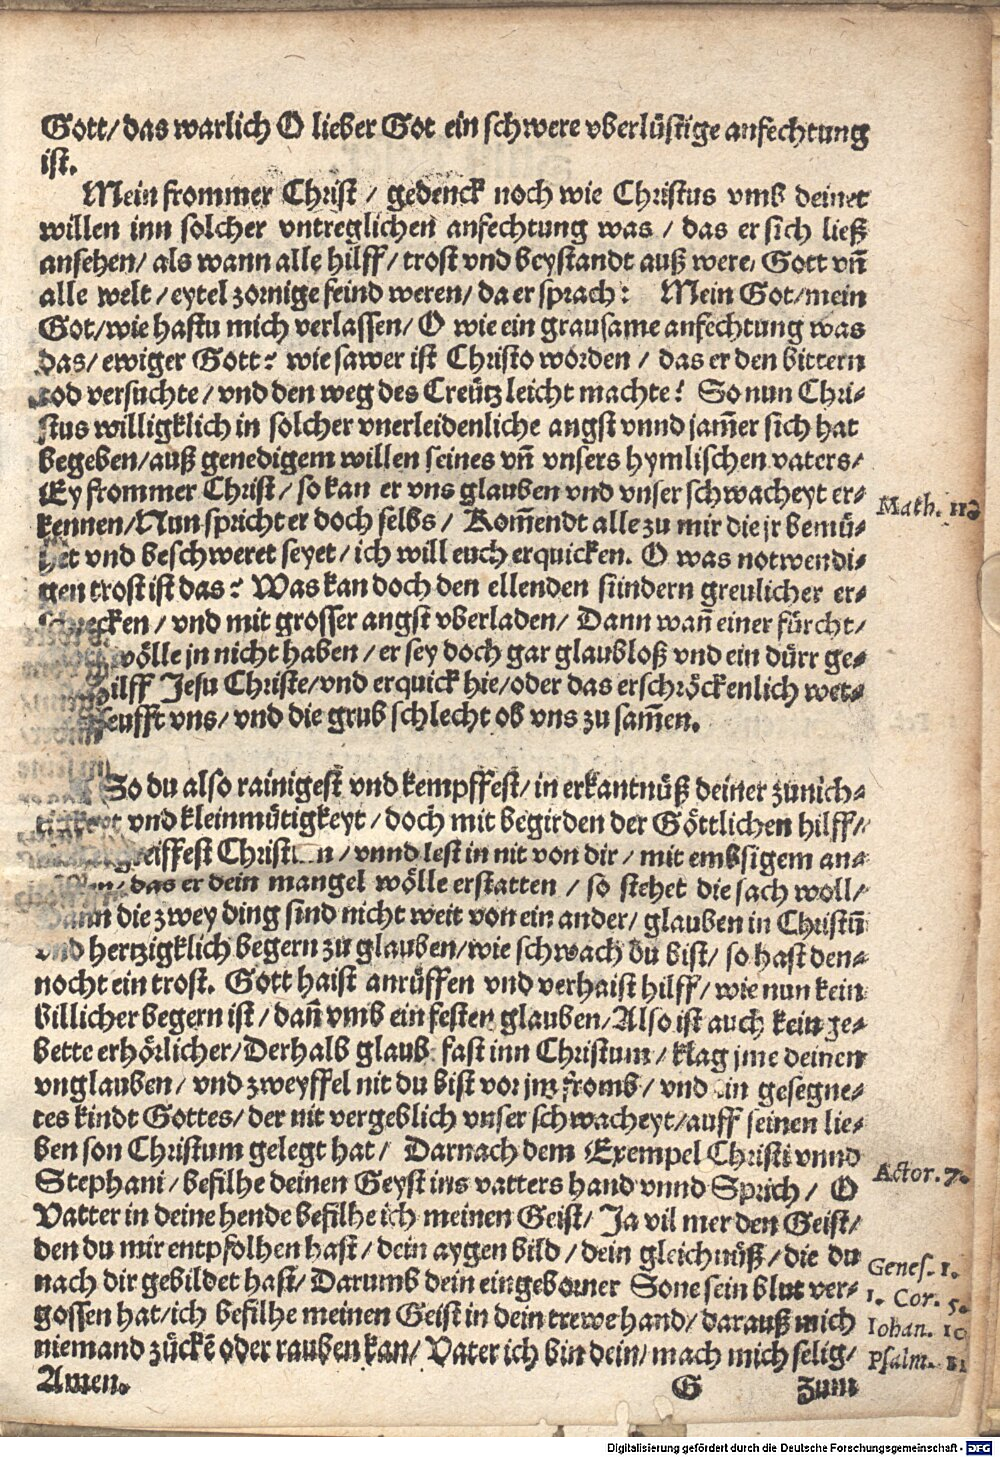 Gott/ das warlich O lieber Got ein schwere vberlüstige anfechtung
ist.
Mein frommer Christ / gedenck noch wie Christus vmb deinet
willen inn solcher vntreglichen anfechtung was / das er sich ließ
ansehen/ als wann alle hilff/ trost vnd beystandt auß were, Gott vñ
alle welt / eytel zornige feind weren/ da er sprach: Mein Got/mein
Got/wie hastu mich verlassen/ O wie ein grausame anfechtung was
das/ ewiger Gott? wie sawer ist Christo worden / das er den bittern
tod versuchte/ vnd den weg des Creütz leicht machte! So nun Chri-
stus willigklich in solcher vnerleidenliche angst vnnd jam̃er sich hat
begeben/auß genedigem willen seines vñ vnsers hymlischen vaters/
Ey frommer Christ/ so kan er vns glauben vnd vnser schwacheyt er-
kennen/Nun spricht er doch selbs/ Kom̃endt alle zu mir die jr bemü-
het vnd beschweret seyet/ ich will euch erquicken. O was notwendi-
gen trost ist das? Was kan doch den ellenden sündern greulicher er-
schrecken / vnd mit grosser angst vberladen/ Dann wañ einer fürcht/
wölle jn nicht haben / er sey doch gar glaubloß vnd ein dürr ge-
hilff Jesu Christe/vnd erquick hie/oder das erschröckenlich wet-
seufft vns/ vnd die grub schlecht ob vns zu sam̃en.
So du also rainigest vnd kempffest/ in erkantnüß deiner zunich-
tigkeyt vnd kleinmütigkeyt / doch mit begirden der Göttlichen hilff/
greiffest Christum / vnnd lest in nit von dir / mit embsigem an-
das er dein mangel wölle erstatten / so stehet die sach woll/
Dann die zwey ding sind nicht weit von ein ander/ glauben in Christũ
vnd hertzigklich begern zu glauben/wie schwach du bist/ so hast den-
nocht ein trost. Gott haist anrüffen vnd verhaist hilff/ wie nun kein
billicher begern ist / dañ vmb ein festen glauben/Also ist auch kein ge-
bette erhörlicher/Derhalb glaub fast inn Christum / klag jme deinen
vnglauben/ vnd zweyffel nit du bist vor jm fromb/ vnd ein gesegne-
tes kindt Gottes/ der nit vergeblich vnser schwacheyt/auff seinen lie-
ben son Christum gelegt hat/ Darnach dem Exempel Christi vnnd
Stephani/ befilhe deinen Geyst ins vatters hand vnnd Sprich/ O
Vatter in deine hende befilhe ich meinen Geist/ Ja vil mer den Geist/
den du mir entpfolhen hast/ dein aygen bild / dein gleichnüß/ die du
nach dir gebildet hast/ Darumb dein eingeborner Sone sein blut ver-
gossen hat/ich befilhe meinen Geist in dein trewe hand/ darauß mich
niemand zückẽ oder rauben kan/ Vater ich bin dein/ mach mich selig/
Amen.
G Zum
Math. 11
Actor. 7.
Genes. 1.
1. Cor. 5.
Iohan. 10
Psalm. 11
Digitalisierung gefördert durch die Deutsche Forschungsgemeinschaft - DFG